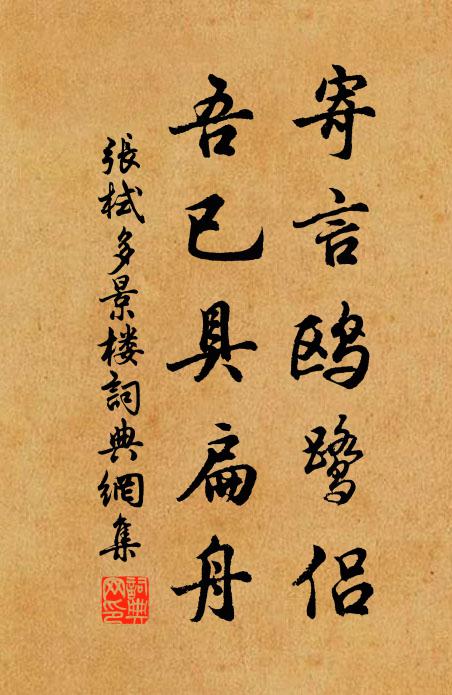 寄言鸥鹭侣
吾已具扁舟
張栻多景楼詞典網集
詞典网印